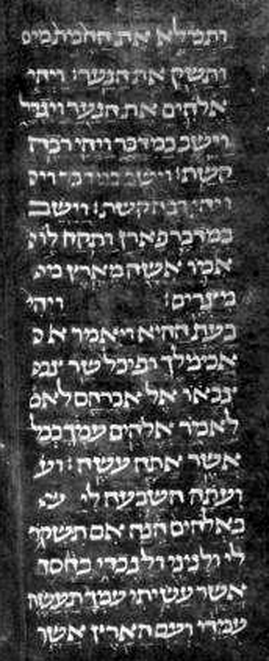 ותמלא את החמת מים
ותשק את הנער׃ ויהי
אלהים את הנער ויגדל
וישב במדבר ויהי רבה
קשת׃ וישב במדבר
ויהי רבה קשת׃ וישב
במדבר פארן ותקח לו
אמו אשה מארץ
מצרים׃ ויהי
בעת ההיא ויאמר א
אבימלך ופיכל שר
צבאו אל אברהם לאמ
לאמר אלהים עמך בכל
אשר אתה עשה׃ וע
ועתה השבעה לי
באלהים הנה אם תשקר
לי ולניני ולנכדי כחסד
אשר עשיתי עמך תעשה
עמדי ועם הארץ אשר